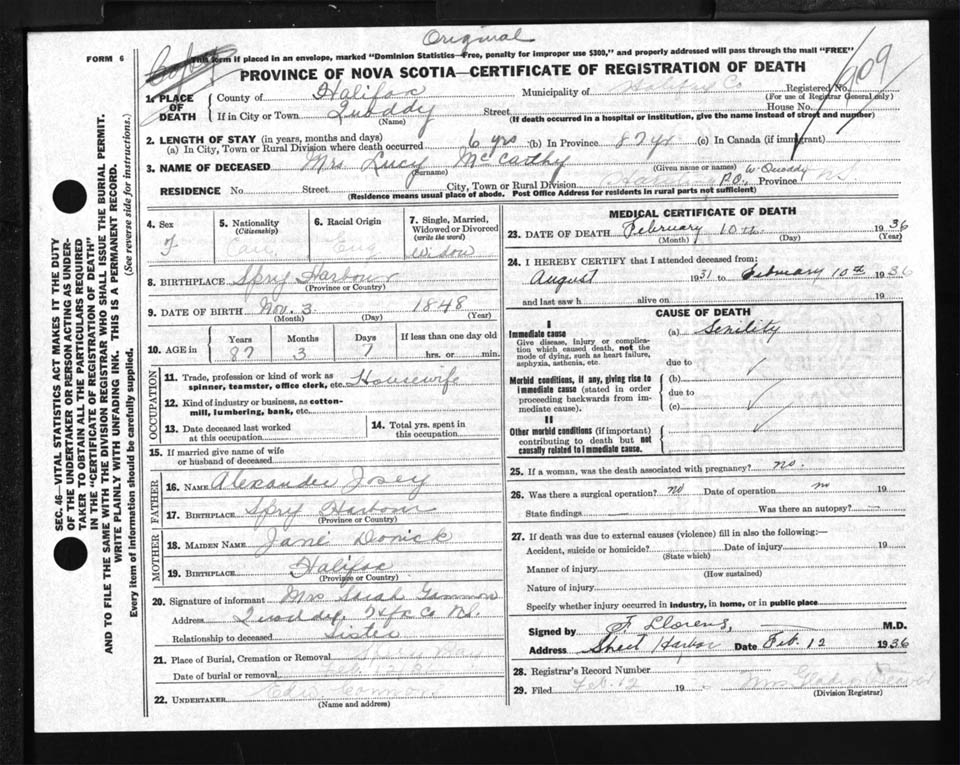 Original
FORM 6
This form if placed in an envelope, marked "Dominion Statistics—Free, penalty for improper use $300," and properly addressed will pass through the mail "FREE"
PROVINCE OF NOVA SCOTIA—CERTIFICATE OF REGISTRATION OF DEATH
1. PLACE OF DEATH
County of Halifax Municipality of Halifax Co Registered No.
(For use of Registrar General only)
909
If in City or Town Quoddy Street House No.
(Name) (If death occurred in a hospital or institution, give the name instead of street and number)
2. LENGTH OF STAY (in years, months and days)
(a) In City, Town or Rural Division where death occurred 6 yrs (b) In Province 87 yr (c) In Canada (if immigrant)
3. NAME OF DECEASED Mrs Lucy McCarthy
(Surname) (Given name or names) W Quoddy
RESIDENCE No. Street City, Town or Rural Division P.O., Province N.S.
(Residence means usual place of abode. Post Office Address for residents in rural parts not sufficient)
4. Sex F
5. Nationality (Citizenship) Can
6. Racial Origin Eng
7. Single, Married, Widowed or Divorced (write the word) Widow
8. BIRTHPLACE Spry Harbour
(Province or Country)
9. DATE OF BIRTH Nov. 3 1848
(Month) (Day) (Year)
10. AGE in Years 87 Months 3 Days 7 If less than one day old hrs. or min.
OCCUPATION
11. Trade, profession or kind of work as spinner, teamster, office clerk, etc. Housewife
12. Kind of industry or business, as cotton-mill, lumbering, bank, etc.
13. Date deceased last worked at this occupation
14. Total yrs. spent in this occupation
15. If married give name of wife or husband of deceased
FATHER
16. NAME Alexander Josey
17. BIRTHPLACE Spry Harbour
(Province or Country)
MOTHER
18. MAIDEN NAME Jane
19. BIRTHPLACE Halifax
(Province or Country)
20. Signature of informant Mrs Sarah Gammon
Address Quoddy, Hfx Co N.S.
Relationship to deceased Sister
21. Place of Burial, Cremation or Removal Spry Bay
Date of burial or removal Feb
22. UNDERTAKER Edw Connors
(Name and address)
MEDICAL CERTIFICATE OF DEATH
23. DATE OF DEATH February 10th 1936
(Month) (Day) (Year)
24. I HEREBY CERTIFY that I attended deceased from:
August 1931 to February 10th 1936
and last saw h alive on 19
CAUSE OF DEATH
I
Immediate cause
Give disease, injury or complication which caused death, not the mode of dying, such as heart failure, asphyxia, asthenia, etc.
(a) Senility
due to
Morbid conditions, if any, giving rise to immediate cause (stated in order proceeding backwards from immediate cause).
(b)
due to
(c)
II
Other morbid conditions (if important) contributing to death but not causally related to immediate cause.
25. If a woman, was the death associated with pregnancy? no.
26. Was there a surgical operation? no Date of operation no 19
State findings — Was there an autopsy? —
27. If death was due to external causes (violence) fill in also the following:—
Accident, suicide or homicide? Date of injury 19
(State which)
Manner of injury
(How sustained)
Nature of injury
Specify whether injury occurred in industry, in home, or in public place
Signed by F Llorens, M.D.
Address Sheet Harbor Date Feb. 12 1936
28. Registrar's Record Number
29. Filed Feb. 12 19 Mrs Gladys Beaver
(Division Registrar)
SEC. 46—VITAL STATISTICS ACT MAKES IT THE DUTY
OF THE UNDERTAKER OR PERSON ACTING AS UNDER-
TAKER TO OBTAIN ALL THE PARTICULARS REQUIRED
IN THE "CERTIFICATE OF REGISTRATION OF DEATH"
AND TO FILE THE SAME WITH THE DIVISION REGISTRAR WHO SHALL ISSUE THE BURIAL PERMIT.
WRITE PLAINLY WITH UNFADING INK. THIS IS A PERMANENT RECORD.
Every item of information should be carefully supplied. (See reverse side for instructions.)